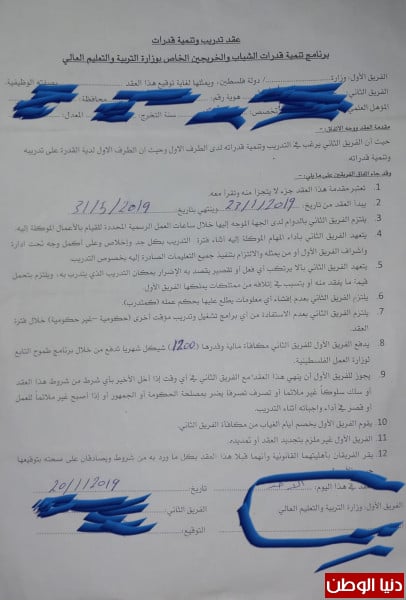 عقد تدريب وتنمية قدرات
برنامج تنمية قدرات الشباب والخريجين الخاص بوزارة التربية والتعليم العالي
الفريق الأول: وزارة / دولة فلسطين، ويمثلها لغاية توقيع هذا العقد بصفته الوظيفية.
الفريق الثاني هوية رقم محافظة:
المؤهل العلمي تخصص: سنة التخرج: المعدل:
مقدمة العقد ووجه الاتفاق:-
حيث أن الفريق الثاني يرغب في التدريب وتنمية قدراته لدى الطرف الأول وحيث إن الطرف الأول لدية القدرة على تدريبه
وتنمية قدراته.
وقد جاء اتفاق الفريقين على ما يلي:-
1. تعتبر مقدمة هذا العقد جزء لا يتجزأ منه وتقرأ معه.
2. يبدأ العقد من تاريخ: 27/1/2019 وينتهي بتاريخ: 31/5/2019
3. يلتزم الفريق الثاني بالدوام لدى الجهة الموجه إليها خلال ساعات العمل الرسمية المحددة للقيام بالأعمال الموكلة إليه.
4. يتعهد الفريق الثاني بأداء المهام الموكلة إليه أثناء فترة التدريب بكل جد وإخلاص وعلى أكمل وجه تحت ادارة
واشراف الفريق الأول او من يمثله والالتزام بتنفيذ جميع التعليمات الصادرة إليه بخصوص التدريب
5. يتعهد الفريق الثاني بألا يرتكب أي فعل أو تقصير بتصد به الإضرار بمكان التدريب الذي يتدرب به، ويلتزم بتحمل
قيمة ما يفقد منه أو يتسبب في إتلافه من ممتلكات يملكها الفريق الأول.
6. يلتزم الفريق الثاني بعدم إفشاء أي معلومات يطلع عليها بحكم عمله (كمتدرب).
7. يلتزم الفريق الثاني بعدم الاستفادة من أي برامج تشغيل وتدريب مؤقت أخرى (حكومية –غير حكومية) خلال فترة
العقد.
8. يدفع الفريق الأول للفريق الثاني مكافأة مالية وقدرها (1200) شيكل شهريا تدفع من خلال برنامج طموح التابع
لوزارة العمل الفلسطينية.
9. يجوز للفريق الأول أن ينهي هذا العقد مع الفريق الثاني في أي وقت إذا أخل الأخير بأي شرط من شروط هذا العقد
أو سلك سلوكا غير ملائما أو تصرف تصرفا يضر بمصلحة الحكومة أو الجمهور أو إذا أصبح غير ملائما للعمل
أو قصر في أداء واجباته أثناء التدريب.
10. يقوم الفريق الأول بخصم أيام الغياب من مكافأة الفريق الثاني.
11. الفريق الأول غير ملزم بتجديد العقد أو تمديده.
12. يقر الفريقان بأهليتهما القانونية وأنهما قبلا هذا العقد بكل ما ورد به من شروط ويصادقان على صحته بتوقيعها
في هذا اليوم: تاريخ: 20/1/2019
الفريق الأول: وزارة التربية والتعليم العالي الفريق الثاني:
التوقيع:
دنيا الوطن